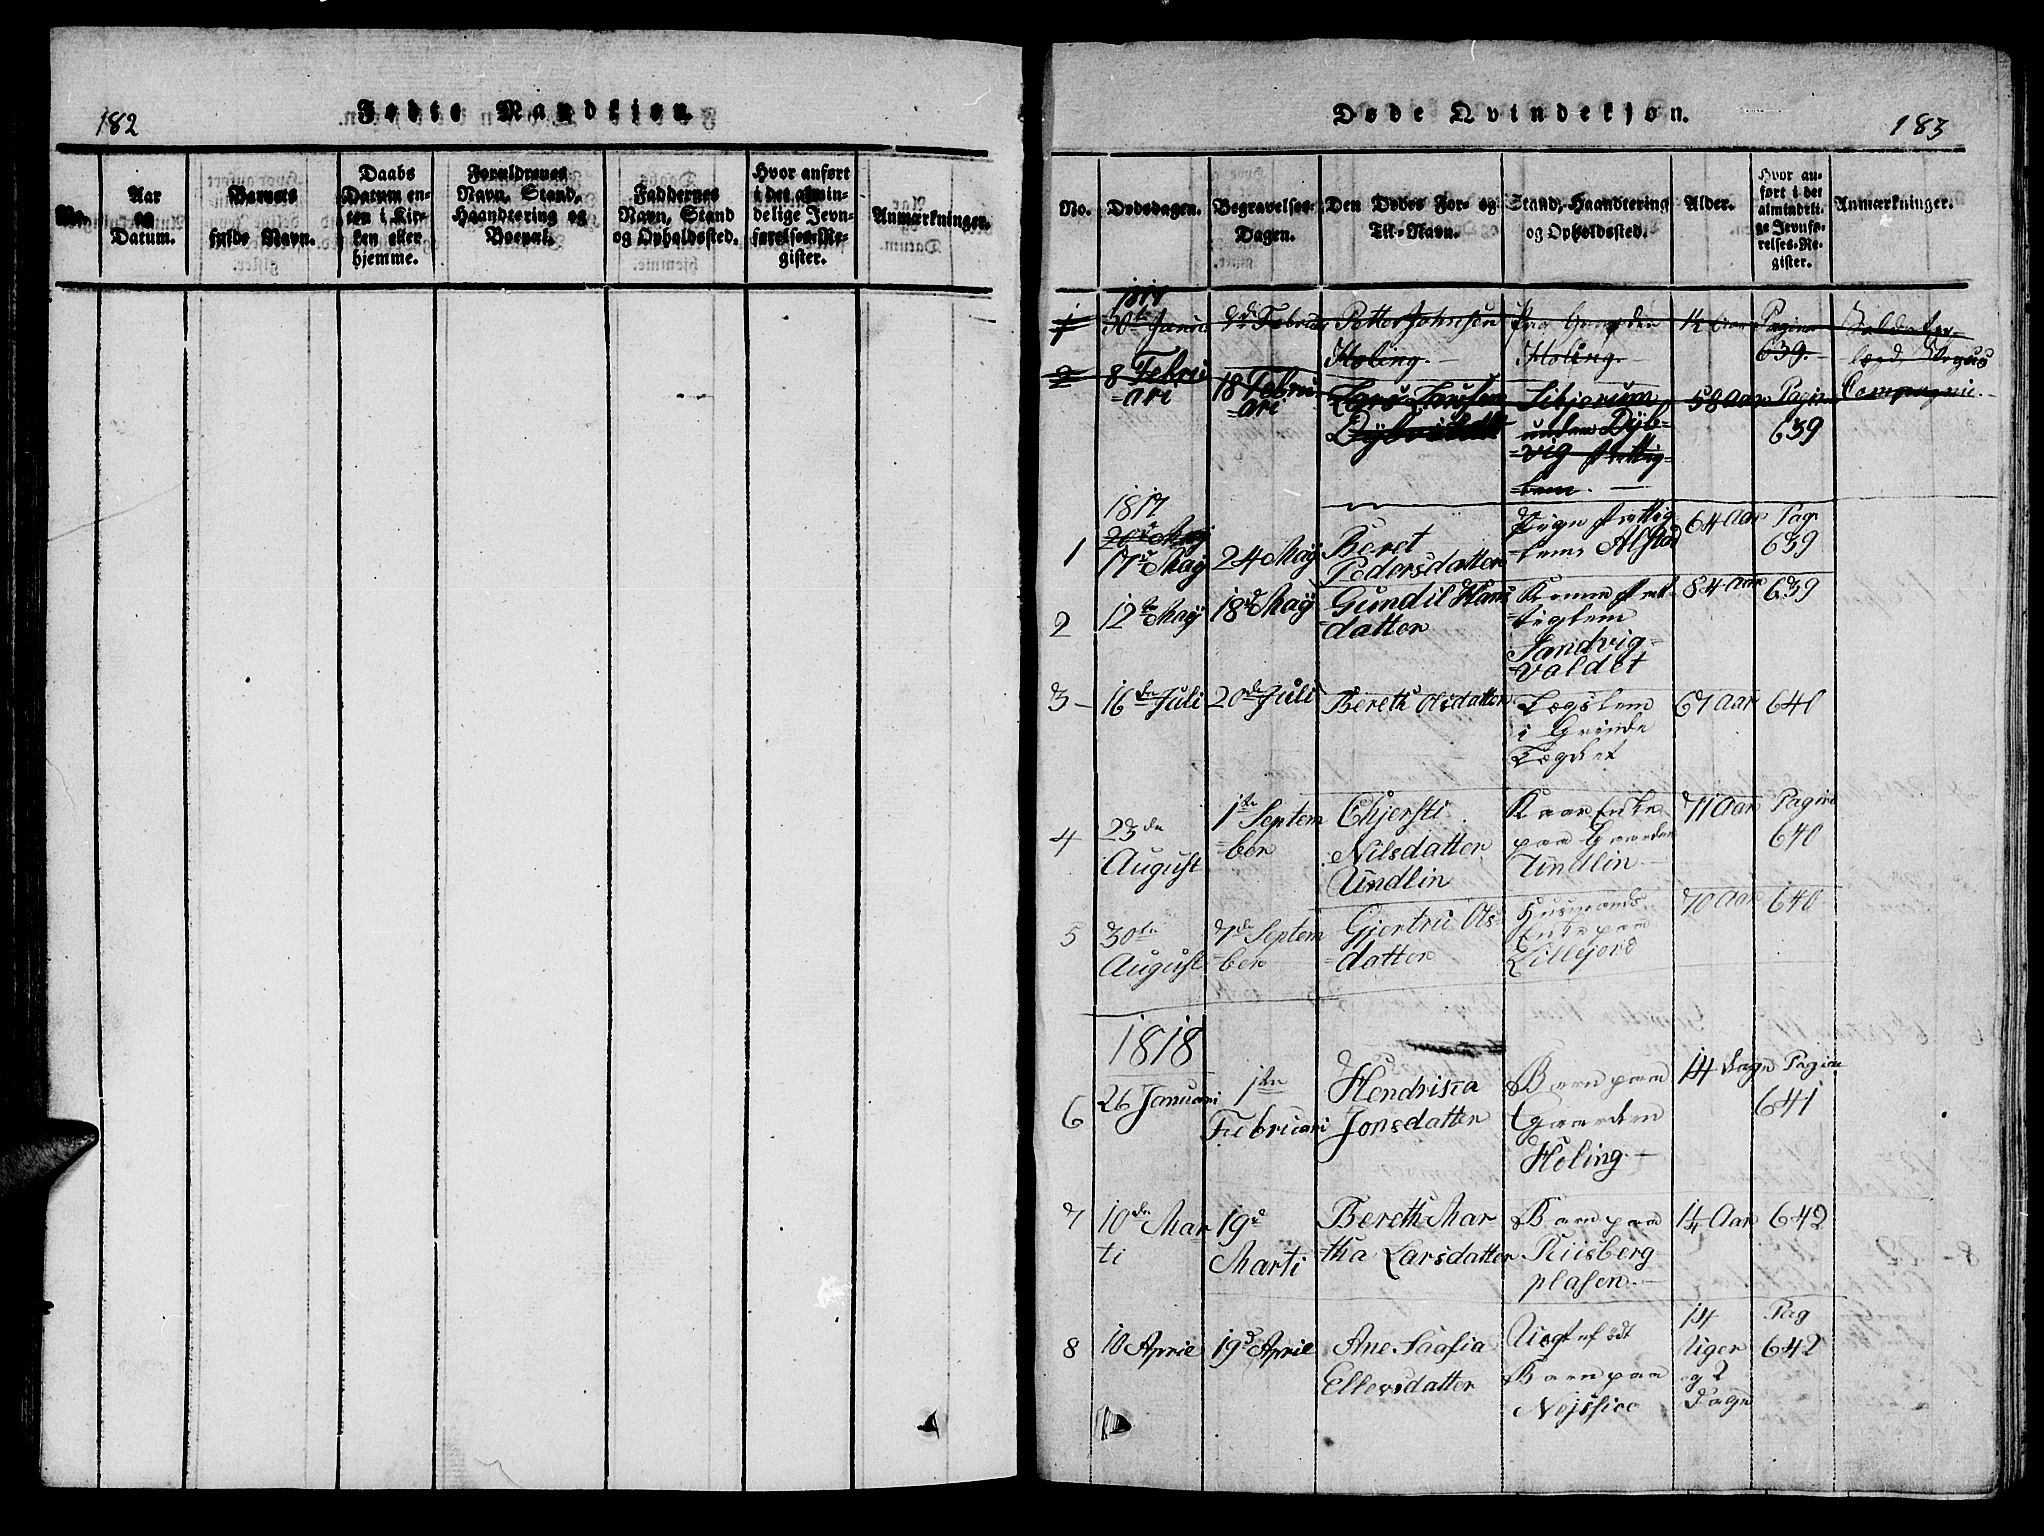 182
Fødte Mandkjøn.
No.
Aar
og
Datum.
Barnets
fulde Navn.
Daabs
Datum en-
ten i Kir-
ken eller
hjemme.
Forældrenes
Navn, Stand,
Haandtering og
Boepæl.
Faddernes
Navn, Stand
og Opholdssted.
Hvor anført
i det almin-
delige Jevn-
førelses-Re-
gister.
Anmærkninger.
Døde Qvindekjøn.
183
No.
Dødsdagen.
Begravelses-
Dagen.
Den Dødes For- og
Til-Navn.
Stand, Haandtering
og Opholdssted.
Alder.
Hvor an-
ført i det
almindeli-
ge Jevnfø-
relses-Re-
gister.
Anmærkninger.
1
30te Janu
Petter Johnsen
Holing.
Paa Gaarden
Holing.
½ Aar
Pagina
639.
2
8 Febru
ari
18 Febru
ari
Lars Larsen
58 Aar
Pagin
639
under Dÿb-
vig
Compagnie.
1817
1
17d Maÿ
24 Maÿ
Beret
Pedersdatter
Alstad
64 Aar
Pag
639
2
12te Maÿ
18d Maÿ
Gundil Hans
datter
Sandvig-
valdet
84 Aar
639
3
16de Juli
20de Juli
Bereth Olsdatter
Lægslem
i Grinde
Lægdet
67 Aar
640
4
23de
August
1te Septem
ber
Chjersti
Nilsdatter
Undlin
Kaar Enke
paa Gaarden
Undlin
71 Aar
Pagina
640
5
30te
August
7de Septem
ber
Gjertru Ols-
datter
Husmands
Enke paa
Lillejord
70 Aar
640
1818
6
26 Januari
1te
Februari
Hendrika
Jonsdatter
Barn paa
Gaarden
Holing
14 Dage
Pagina
641
7
10de Mar
ti
19d
Marti
Bereth Mar
tha Larsdatter
Barn paa
Riisberg
plasen
¼ Aar
642
8
10 April
19d April
Ane Saafia
Ellevsdatter
Uegte født
Barn paa
14
Uger
og 2
Dage
Pag
642